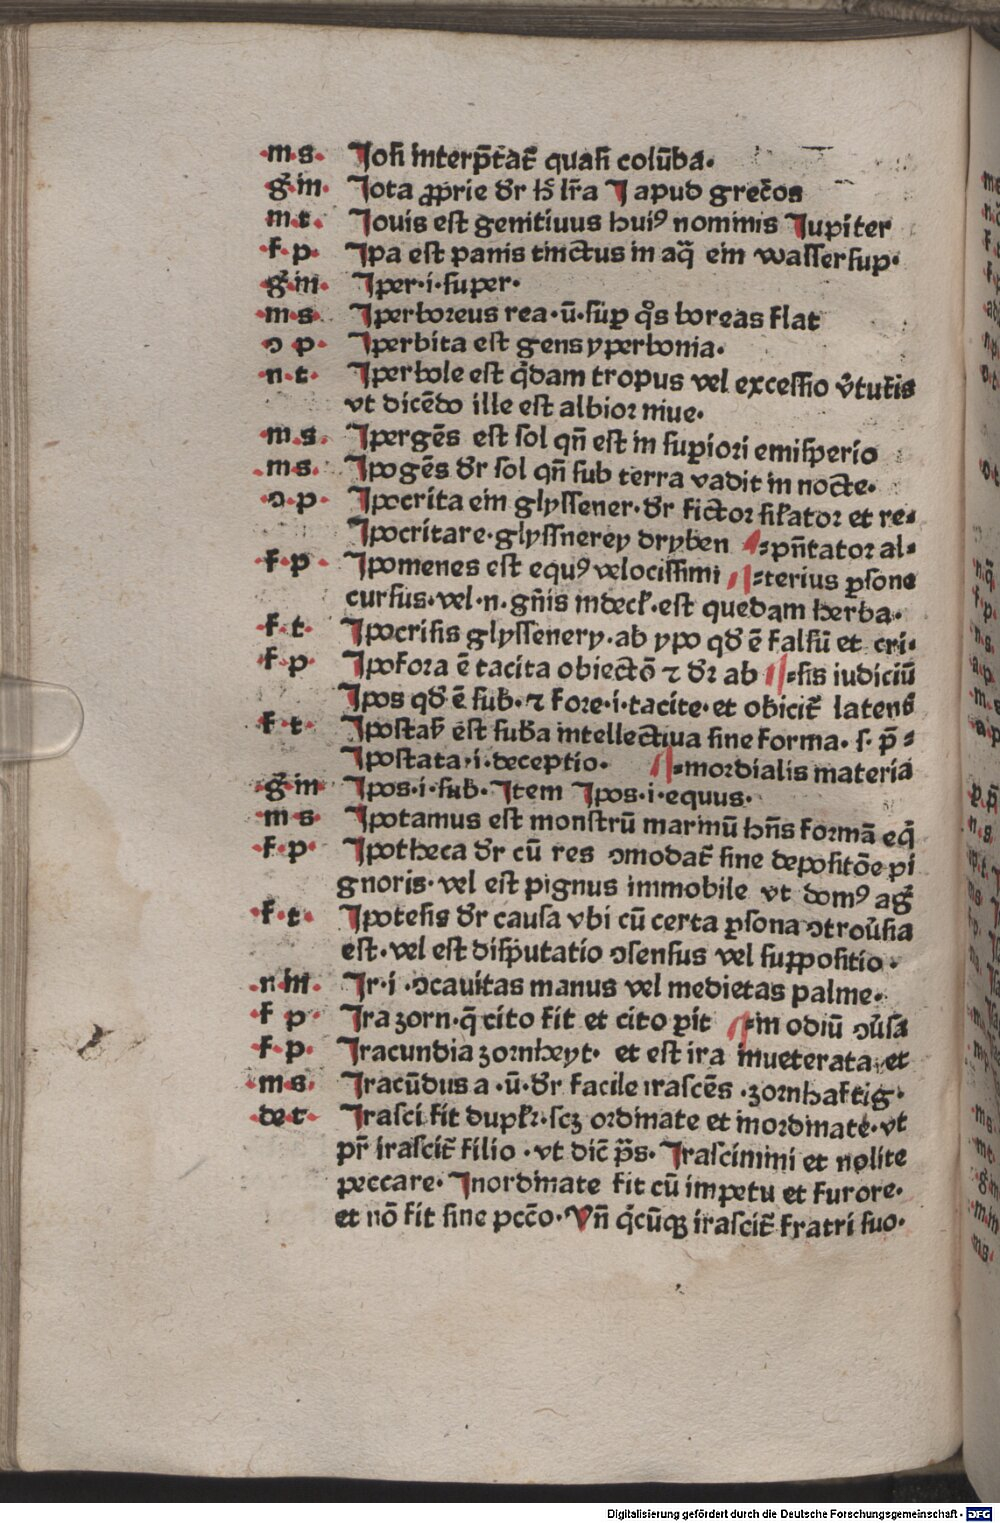 ·m·s· Iosi interp̄tat᷑ quasi colūba·
·ḡ·m· Iota ꝓprie dr̄ hͦ lr̄a I apud grec̄os
·m·t· Iouis est genitiuus huiꝰ nominis Iupiter
·f·p· Ipa est panis tinctus in aq̄ ein wasser sup·
·ḡ·m· Iper·i·super·
·m·s· Iperboreus rea·ū·sup̄ qͦs boreas flat
·ↄ p· Iperbita est gens yperbonia·
·n·t· Iperbole est q̄dam tropus vel excessio v̄tut᷑is
vt dicēdo ille est albior niue·
·m·s· Ipergēs est sol qn̄ est in supiori emisperio
·m s· Ipogēs dr̄ sol qn̄ sub terra vadit in nocte·
·ↄ·p· Ipocrita ein glyssener·dr̄ fictor silator et re⸗
Ipocritare·glyssnerey dryben ⸗pn̄tator al⸗
·f·p· Ipomenes est equꝰ velocissimi ⸗terius ꝑsone
cursus·vel·n·gn̄is indecł·est quedam herba·
·f·t· Ipocrisis glyssenery·ab ypo qd̄ ē falsū et cri⸗
·f p· Ipofora ē tacita obiectō ⁊ dr̄ ab ⸗sis iudiciū
Ipos qd̄ ē sub·⁊ fore·i·tacite·et obicit᷑ latens
·f·t· Ipostas̄ est sub̄a intellectiua sine forma·s·p̄⸗
Ipostata·i·deceptio· ⸗mordialis materia
·ḡ·m· Ipos·i·sub·Item Ipos·i·equus·
·m·s· Ipotamus est monstrū marinū hn̄s formā eq̄
·f·p· Ipotheca dr̄ cū res ↄmodat᷑ sine depositōe pi
gnoris·vel est pignus immobile vt domꝰ aḡ
·f·t· Ipotesis dr̄ causa vbi cū certa ꝑsona ↄtrou̓sia
est·vel est disputatio ↄsensus vel suppositio·
·n·m· Ir·i·ↄcauitas manus vel medietas palme·
·f p· Ira zorn·q̄ cito fit et cito ꝑit ⸗in odiū ↄu̓sa
·f·p· Iracundia zornheyt· et est ira inueterata et
·m·s· Iracūdus a·ū·dr̄ facile irascēs·zornhaftig·
·de t· Irasci fit dupłr·scꝫ ordinate et inordinate·vt
pr̄ irascit᷑ filio·vt dic̄ p̄s·Irascimini et nolite
peccare·Inordinate fit cū impetu et furore·
et nō fit sine pcc̄o·Vn̄ q̄cūqꝫ irascit᷑ fratri suo·
Digitalisierung gefördert durch die Deutsche Forschungsgemeinschaft - DFG